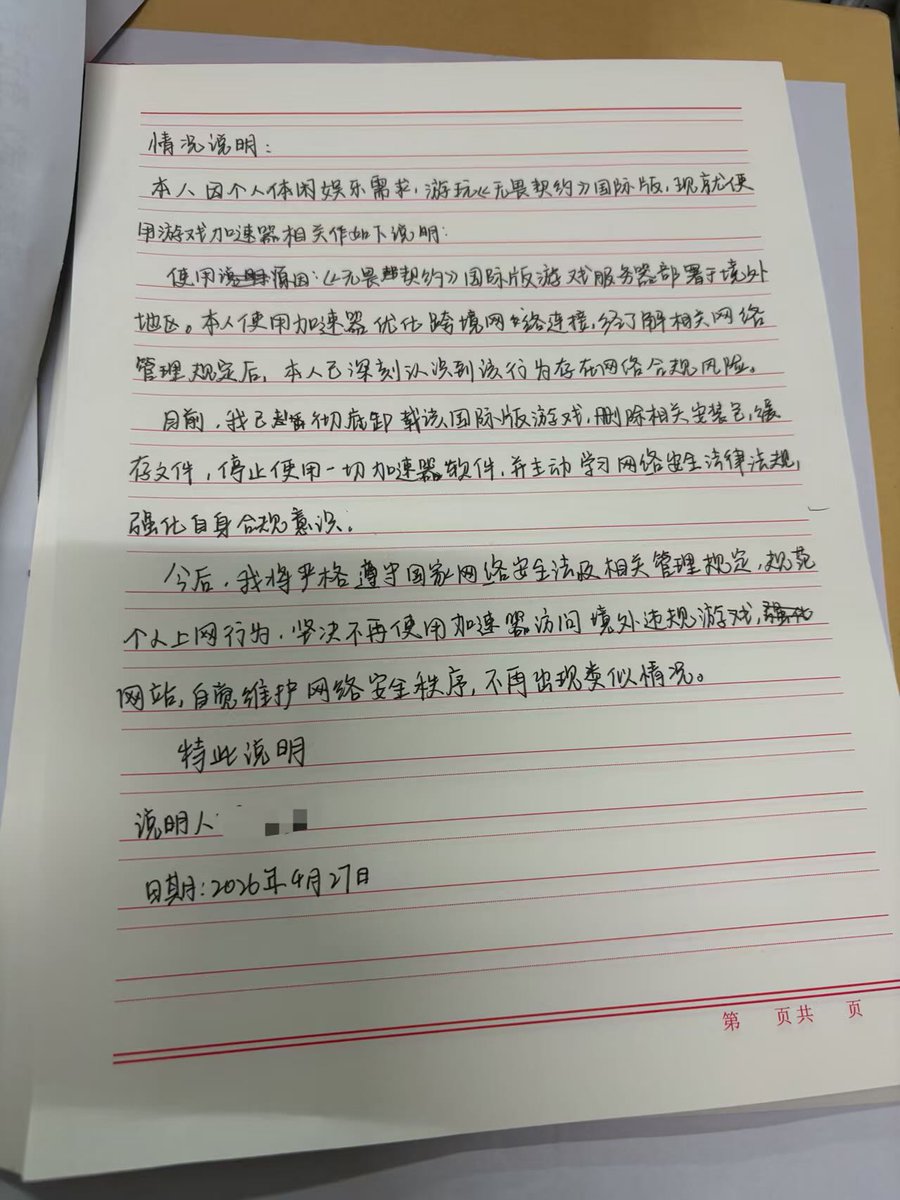 情况说明：
本人因个人休闲娱乐需求，游玩《无畏契约》国际版，现就使
用游戏加速器相关作如下说明：
使用原因：《无畏契约》国际版游戏服务器部署于境外
地区。本人使用加速器优化跨境网络连接，经了解相关网络
管理规定后，本人已深刻认识到该行为存在网络合规风险。
目前，我已彻底卸载该国际版游戏，删除相关安装包，缓
存文件，停止使用一切加速器软件，并主动学习网络安全法律法规，
强化自身合规意识。
今后，我将严格遵守国家网络安全法及相关管理规定，规范
个人上网行为，坚决不再使用加速器访问境外违规游戏，
网站，自觉维护网络安全秩序，不再出现类似情况。
特此说明
说明人：
日期：2026年4月27日
第 页共 页